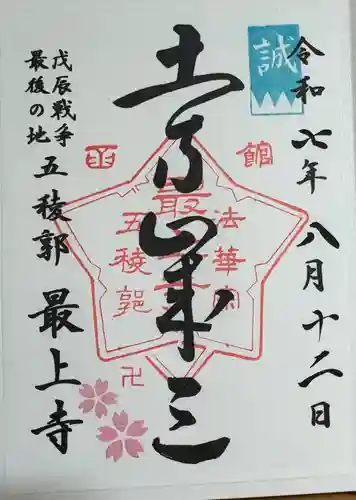 令和七年八月十二日
誠
土方歳三
函館
法華宗
最上寺
五稜郭
卍
戊辰戦争
最後の地
五稜郭 最上寺